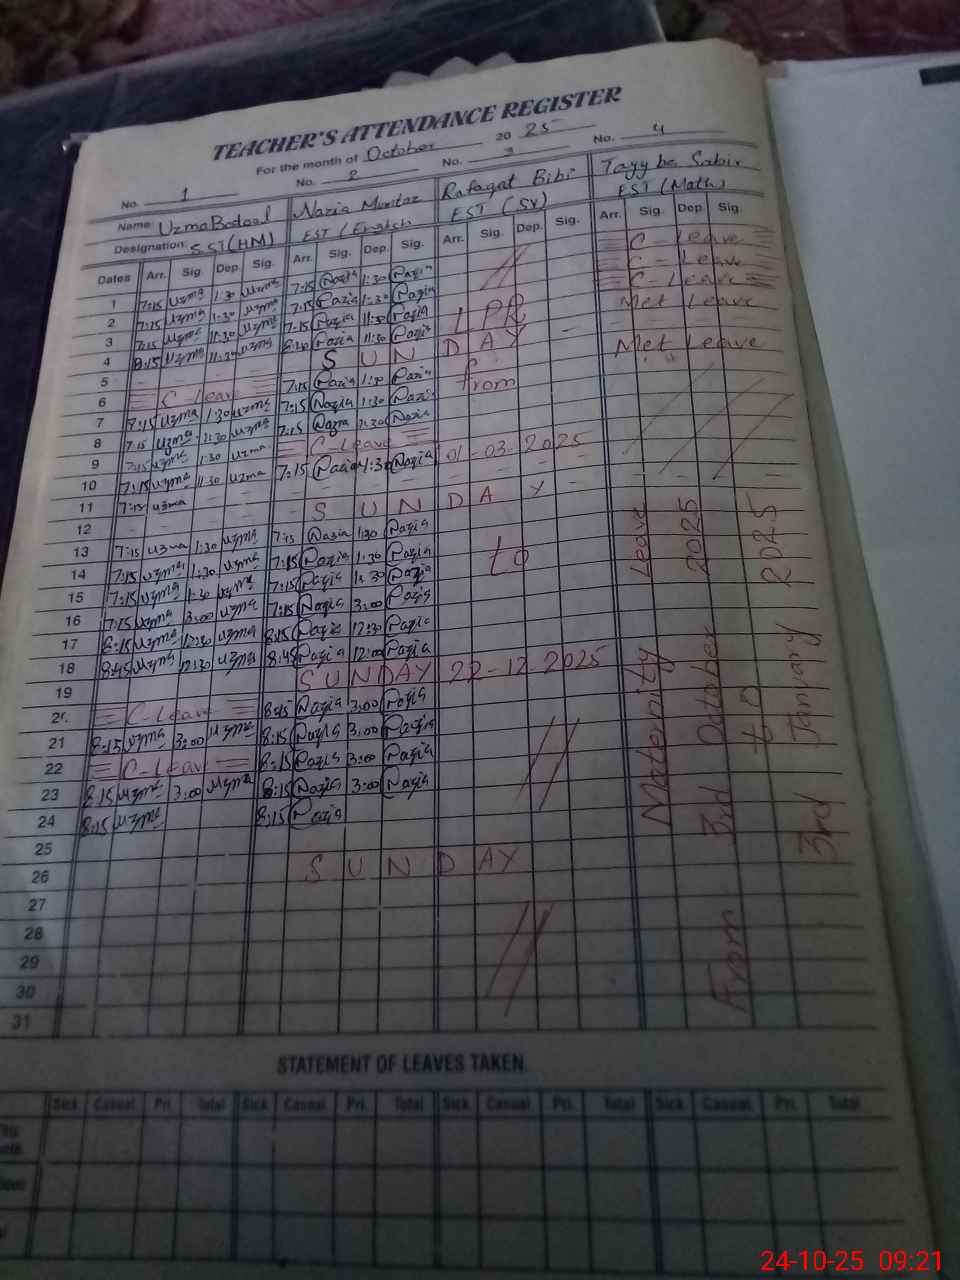 TEACHER'S ATTENDANCE REGISTER
For the month of October 2025
No. 1 No. 2 No. 3 No. 4
Name: Uzma Nazia Mumtaz Rafaqat Bibi Tayyba Sabir
Designation: S.ST(HM) EST (English) EST (SV) EST (Math)
Dates Arr. Sig. Dep. Sig. Arr. Sig. Dep. Sig. Arr. Sig. Dep. Sig. Arr. Sig. Dep. Sig.
1 7:15 Uzma 1:30 Uzma 7:15 Nazia 1:30 Nazia C-Leave
2 7:15 Uzma 1:30 Uzma 7:15 Nazia 1:30 Nazia C-Leave
3 7:15 Uzma 11:30 Uzma 7:15 Nazia 11:30 Nazia LPR C-Leave
4 8:15 Uzma 11:30 Uzma 8:30 Nazia 11:30 Nazia Met Leave
5 SUNDAY
6 C Leave 7:15 Nazia 1:30 Nazia from Met Leave
7 7:15 Uzma 1:30 Uzma 7:15 Nazia 1:30 Nazia
8 7:15 Uzma 1:30 Uzma 7:15 Nazia 1:30 Nazia
9 7:15 Uzma 1:30 Uzma C Leave 01-03-2025
10 7:15 Uzma 11:30 Uzma 7:15 Nazia Nazia
11 7:15 Uzma
12 SUNDAY
13 7:15 Uzma 1:30 Uzma 7:15 Nazia 1:30 Nazia
14 7:15 Uzma 1:30 Uzma 7:15 Nazia 1:30 Nazia to
15 7:15 Uzma 1:30 Uzma 7:15 Nazia 1:30 Nazia
16 7:15 Uzma 3:00 Uzma 7:15 Nazia 3:00 Nazia
17 8:15 Uzma 12:30 Uzma 8:15 Nazia 12:30 Nazia
18 8:45 Uzma 12:30 Uzma 8:45 Nazia 12:00 Nazia
19 SUNDAY 22-12-2025
20 C-Leave 8:45 Nazia 3:00 Nazia
21 8:15 Uzma 3:00 Uzma 8:15 Nazia 3:00 Nazia
22 C-Leave 8:15 Nazia 3:00 Nazia
23 8:15 Uzma 3:00 Uzma 8:15 Nazia 3:00 Nazia
24 8:15 Uzma 8:15 Nazia
25
26 SUNDAY
27
28
29
30
31
Maternity Leave
From 3rd October 2025
to
3rd January 2025
STATEMENT OF LEAVES TAKEN
Sick Casual Pri. Total Sick Casual Pri. Total Sick Casual Pri. Total Sick Casual Pri. Total
This
24-10-25 09:21